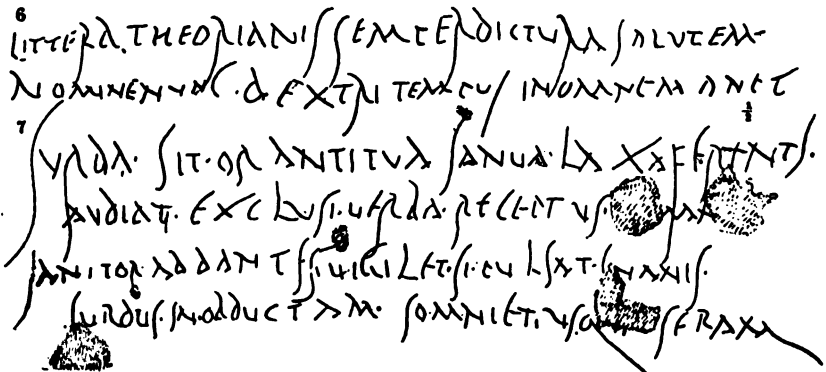 6
LITTERA. THEORIANIS SEMPER DICTURA SALUTEM
NOMINE NUNC. DEXTRI TEMPUS IN OMNE MANET
7
SURDA. SIT. ORANTI TUA IANUA. LAXA FERENTI. 1/3
AUDIAT. EXCLUSI. VERBA. RECEPTUS. AMA
IANITOR AD DANTIS VIGILET. SI. PULSAT. INANIS.
SURDUS. IN. OBDUCTAM. SOMNIET. SERAM